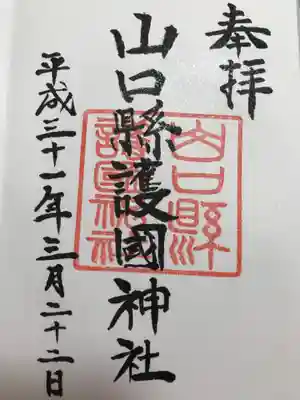 奉拝
山口縣護國神社
山口縣護國神社
平成三十一年三月二十二日